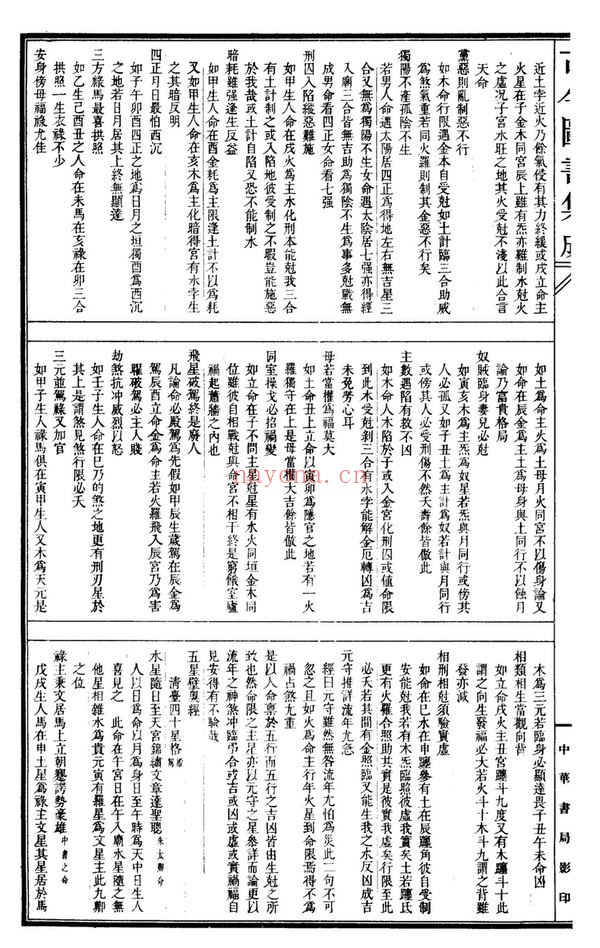 古今圖書集成
近土孛近火乃餘氣侵有其力終緩或戌立命主
火星在子金木同宮辰上雖有炁亦難制水尅火
之虛况子宮水旺之地其火受尅不淺以此合言
天命
黨惡則亂制惡不行
如木命行限遇金本自受尅如土計臨三合助威
為煞氣重若同火羅則制其金惡不行矣
獨陽不產孤陰不生
若男人命遇太陽居四正為得地左右無吉星三
合又無為獨陽不生女命遇太陰居七强亦得經
入廟三合皆無吉助為獨陰不生為事多尅戰無
成男命看四正女命看七强
刑囚入陷縱惡難施
如甲生人命在戌火為主水化刑本能尅我三合
有土計制之或入陷地彼受制之不暇豈能施惡
於我哉或土計自陷又恐不能制水
暗耗雖强逢生反益
如甲生人命在酉金耗為主限逢土計不以為耗
又如甲生人命在亥木為主化暗得宮有水孛生
之其暗反明
四正日月最怕酉沉
如子午卯酉四正之地為日月之垣獨酉為西沉
之地若日月居其上終無顯達
三方祿馬最喜拱照
如乙生巳酉丑之人命在未馬在亥祿在卯三合
拱照一生衣祿不少
安身傍母福祿尤佳
如土為命主火為土母月火同宮不以傷身論又
如命在辰金為主土為母身與土同行不以蝕月
論乃富貴格局
奴賊臨身妻兒必尅
如寅亥木為主炁為奴星若炁與月同行或傍其
人必孤又如子丑命土為主計為奴若計與月同行
或傍其人必受刑傷不然夭壽餘皆倣此
主數遇陷有救不凶
如木命人木陷於子或入金宮化刑囚或值命限
到此木受尅剥三合有水孛能解金厄轉凶為吉
未免勞心耳
母若當權為福莫大
如土命丑上立命以寅卯為隱官之地若有一火
羅獨守在上是母當權大吉餘皆倣此
同室操戈必招禍變
如立命在子不問主尅星有水火同垣金木同
位雖彼自相戰尅與命宮不相干終是窮倏室廬
禍起蕭牆之內也
飛星破駕終是廢人
凡論命必殿駕為先假如甲辰生歲駕在辰金為
駕辰酉立命金為命主若火羅飛入辰宮乃為害
駕破駕必主人賤
劫煞抗冲威烈以怒
如壬子生人命在巳乃的煞之地更有刑刃星於
其上是謂煞見煞行限必夭
三元並駕祿又加官
如甲子生人祿馬俱在寅甲生人又木為天元是
木為三元若臨身必顯達畏子丑午未命凶
相類相生當觀向背
如立命戌火主丑宮躔斗九度又有木躔斗十此
謂之向生發福必大若火斗十木斗九謂之背雖
發亦减
相刑相尅須驗實虛
如命在巳水在申躔參有土在辰躔角彼自受制
安能尅我若有木炁臨照彼虛我實矣土若躔氐
更有火羅合照助其實是彼實我虛矣行限至此
必夭若其間有金照臨又能生我之水反凶成吉
元守推詳流年尤急
經曰元守雖然無咎流年尤怕為災此二句不可
忽之且如火為命主行年火星到命限焉得不為
禍占煞尤重
是以人命稟於五行而五行之吉凶皆由生尅之所
致也然命限之主星亦以元守之星參詳而論更以
流年之神煞冲臨弔合或吉或凶或虛或實禍福自
見安得有不驗哉
五星壁奧經
清臺四十星格局
水星隨日至天宮錦繡文章達聖聰朱太尉命
人以日為命以月為身日至午時為天中日生人
喜見之 此命在午宮日在午入廟水星隨之無
他星相雜水為貴元寅有羅星為文星主此九卿
之位
祿主秉文居馬上立朝蹇諤勢豪雄中書之命
戊戌生人馬在申土星為祿主文星其星居於馬
中華書局影印
nayona.cn